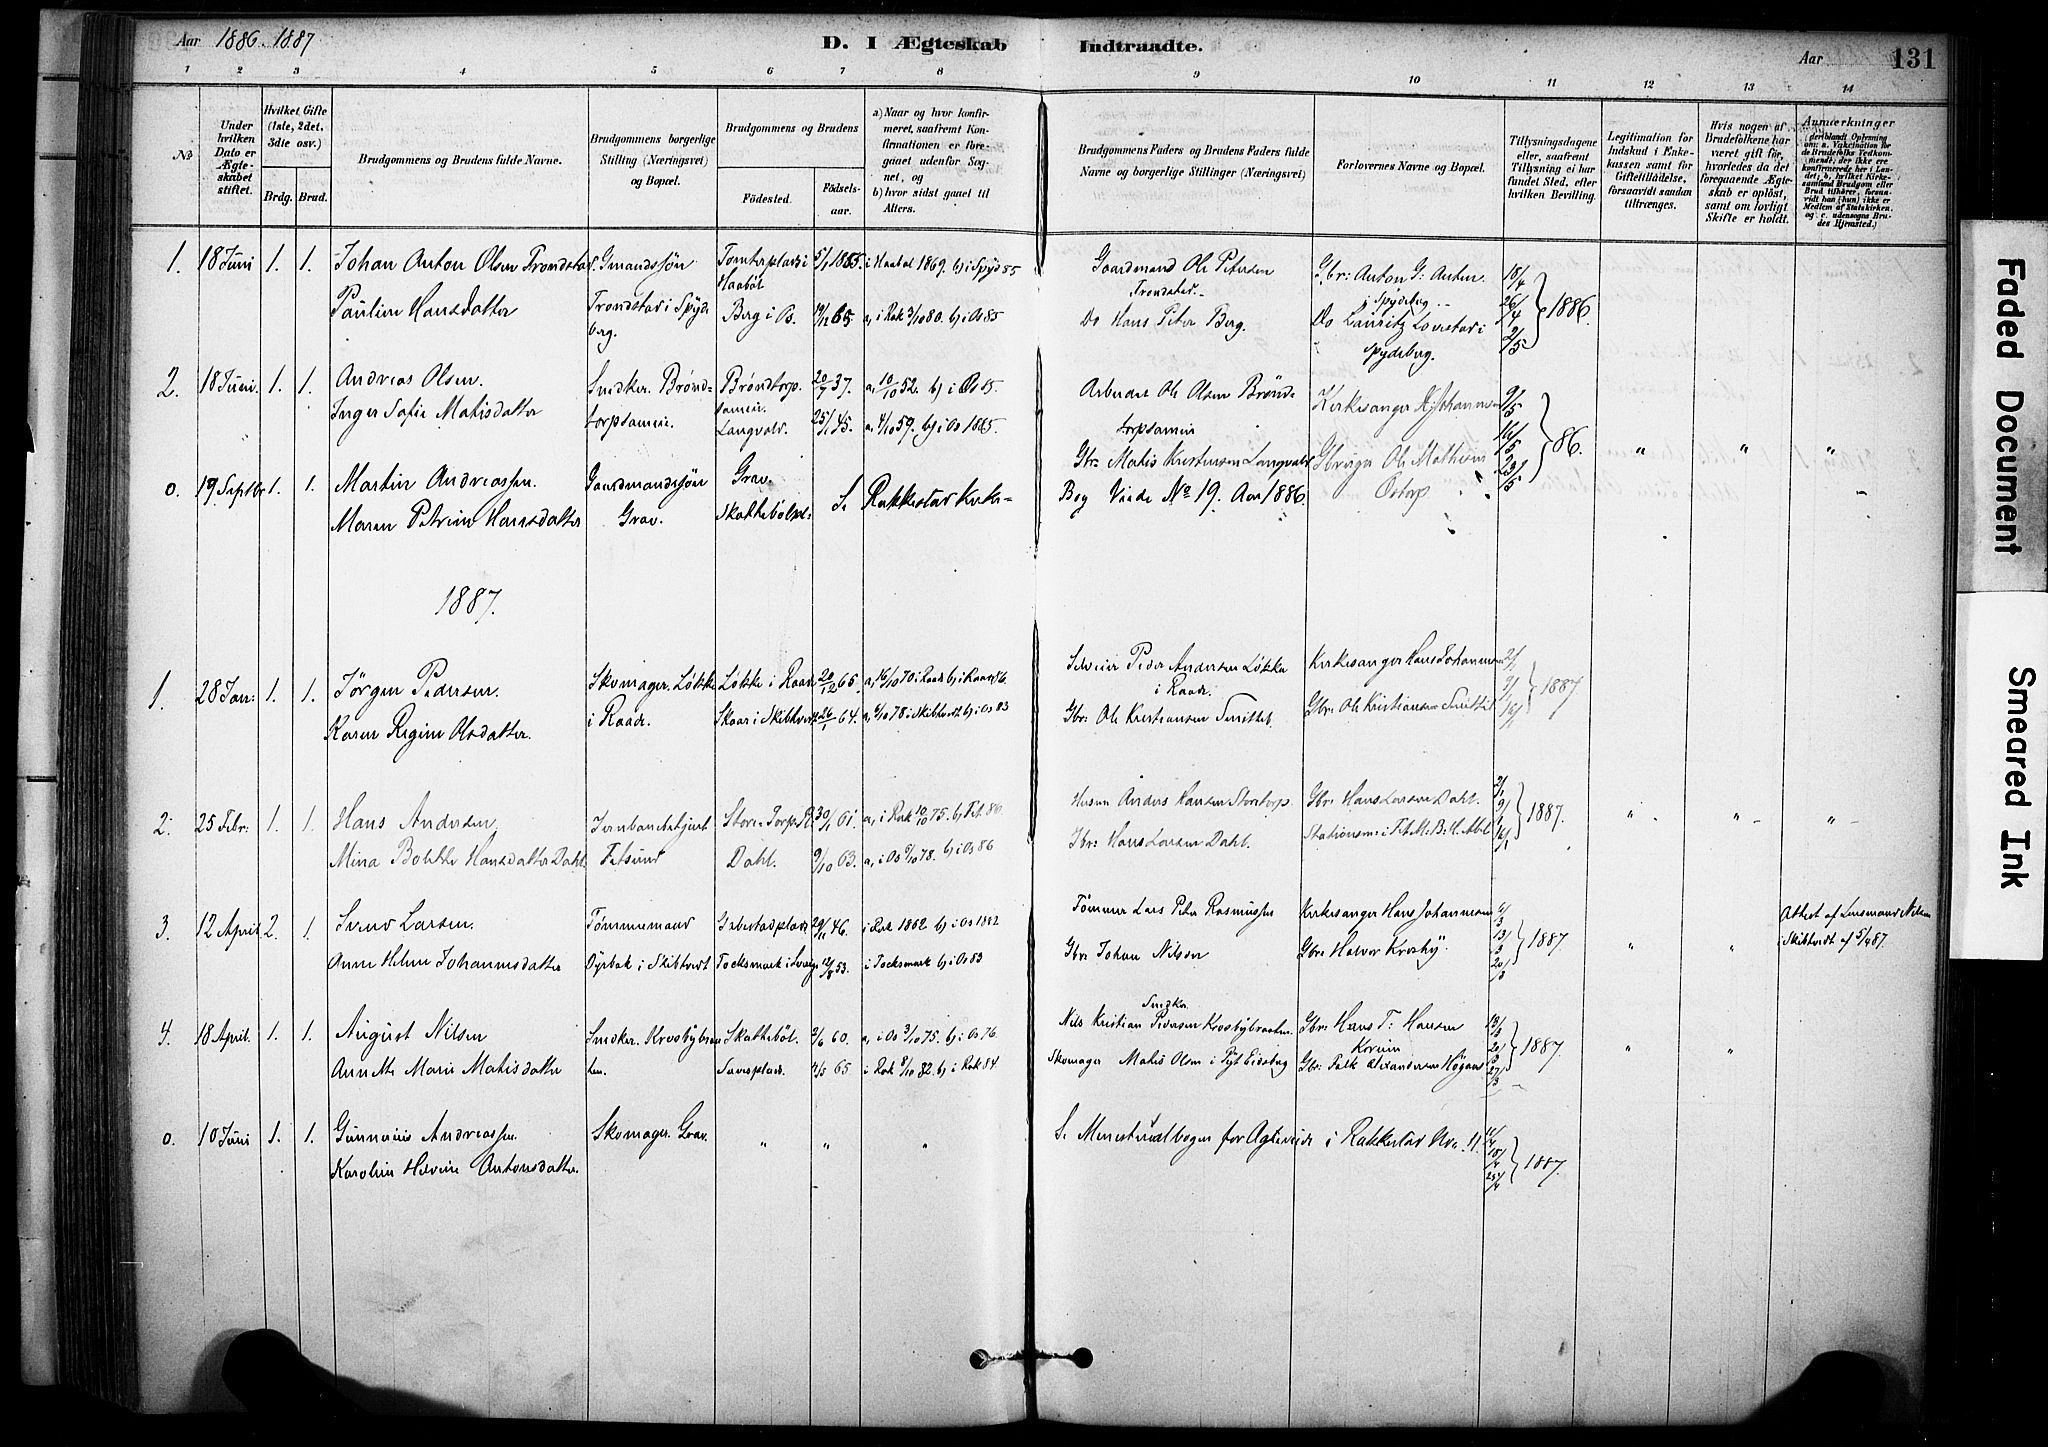 Aar 1886-1887
D. I Ægteskab Indtraadte.
Aar 131
1 2 3 4 5 6 7 8 9 10 11 12 13 14
No
Under hvilken Dato er Ægteskabet stiftet.
Hvilket Gifte (1ste, 2det, 3die osv.)
Brdg. Brud.
Brudgommens og Brudens fulde Navne.
Brudgommens borgerlige Stilling (Næringsvei) og Bopæl.
Brudgommens og Brudens
Födested.
Födselsaar.
a) Naar og hvor konfirmeret, saafremt Konfirmationen er foregaaet udenfor Sognet, og
b) hvor sidst gaaet til Alters.
Brudgommens Faders og Brudens Faders fulde Navne og borgerlige Stillinger (Næringsvei)
Forlovernes Navne og Bopæl.
Tillysningsdagene eller, saafremt Tillysning ei har fundet Sted, efter hvilken Bevilling.
Legitimation for Indskud i Enkekassen samt for Giftetilladelse, forsaavidt saadan tiltrænges.
Hvis nogen af Brudefolkene har været gift för, hvorledes da det foregaaende Ægteskab er oplöst, samt om lovligt Skifte er holdt.
Anmerkninger
1. 18 Juni 1. 1. Johan Anton Olsen Trondstad. Gmandssön Tomterplads i 5/1 1855 i Haabøl 1869. b) i Spyd 85 Gaardmand Ole Petersen Gbr: Anton G: Anten 18/4
Haabøl Trondstad. i Spydeberg 26/4 } 1886.
Pauline Hansdatter Trondstad i Spydeberg. Berg i Os. 65 a, i Rak 3/10 80. b) i Os 85 Do Hans Peter Berg. Do Lauritz Lovestad i Spydeberg. 2/5
2. 18 Juni. 1. 1. Andreas Olsen. Snedker. Bröndtorpsameie. Bröndtorp. 20/7 37. a, 10/10 52. b) i Os 85. Arbeider Ole Olsen Bröndtorpsameie Kirkesanger H. Johannesen 9/5
Inger Sofie Matisdatter Langvold. 25/1 45. a, 4/10 59. b) i Os 1885. Gbr: Matis Kristensen Langvold Gbruger Ole Mathisen Ostorp 16/5 23/5 } 86. " " "
0. 19 Septbr 1. 1. Martin Andreassen. Gaardmandssön Grav. Grav. S. Rakkestad Kirke- Bog Viede No 19. Aar 1886.
Maren Petrine Hansdatter Skattebölpl:
1887.
1. 28 Jan: 1. 1. Jörgen Pedersen. Skomager. Løkke i Raade. Løkke i Raade 20/12 65. a, 16/10 70 i Raade b) i Raade 86. Selveier Peder Andersen Løkke i Raade. Kirkesanger Hans Johannesen 2/1
Karen Regine Olsdatter. Skaar i Skibtvedt 26/1 64. a, 6/10 78 i Skibtvedt b) i Os 83 Gbr: Ole Kristiansen Smittel. Gbr: Ole Kristiansen Smittel 9/1 16/1 } 1887.
2. 25 Febr: 1. 1. Hans Andersen Jernbanebetjent Store-Torp R. 30/1 61. a, i Rak 10/10 75. b) Fet. 86. Husm. Anders Hansen Storetorp. Gbr: Hans Larsen Dahl. 2/1
Mina Bolette Hansdatter Dahl. Fetsund Dahl. 9/10 63. a, i Os 9/10 78. b) i Os 86 Gbr: Hans Larsen Dahl. Stationsm: i Fet 9/1 16/1 } 1887. " " "
3. 12 April 2. 1. Svend Larsen. Tömmermand Grbestadplads 29/11 46. i Rak 1862 b) i Os 1882 Tömmer Lars Peter Rasmussen Kirkesanger Hans Johannesen 6/3 Attest af Lensmand Nilsen
Anne Helene Johannesdatter Dyrbak i Skibtvedt Tocksmark i Sverige 12/8 53. i Tocksmark b) i Os 83 Gbr: Johan Nilsen Gbr: Halvor Krosby 13/3 20/3 } 1887. " " i Skibtvedt af 5/4 87.
4. 18 April. 1. 1. August Nilsen Snedker. Krosbybraaten. Skattebøl. 2/6 60. a, i Os 3/10 75. b) i Os 76. Snedker Nils Kristian Pedersen Krosbybraaten. Gbr: Hans T: Hansen 13/3
Annette Marie Matisdatter 4/5 65 i Rak 8/10 82. b) i Rak 84. Skomager Matis Olsen i Pyt Eidsberg Gbr: Falk Alexandersen Högaas 20/3 27/3 } 1887. " "
0. 10 Juni 1. 1. Gunnerius Andreassen. Skomager. Grav. " " " S. Ministerialbogen for Ægteviede i Rakkestad No 11. 11/4
Karoline Helvine Antonsdatter. 18/4 25/4 } 1887.
Faded Document
Smeared Ink